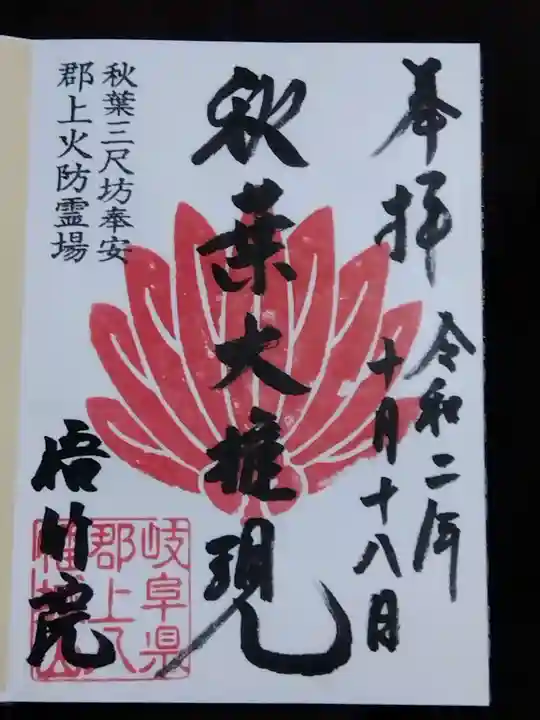 奉拝
令和二年
十月十八日
秋葉大権現
秋葉三尺坊奉安
郡上火防霊場
悟竹院
岐阜県
郡上八
幡城山